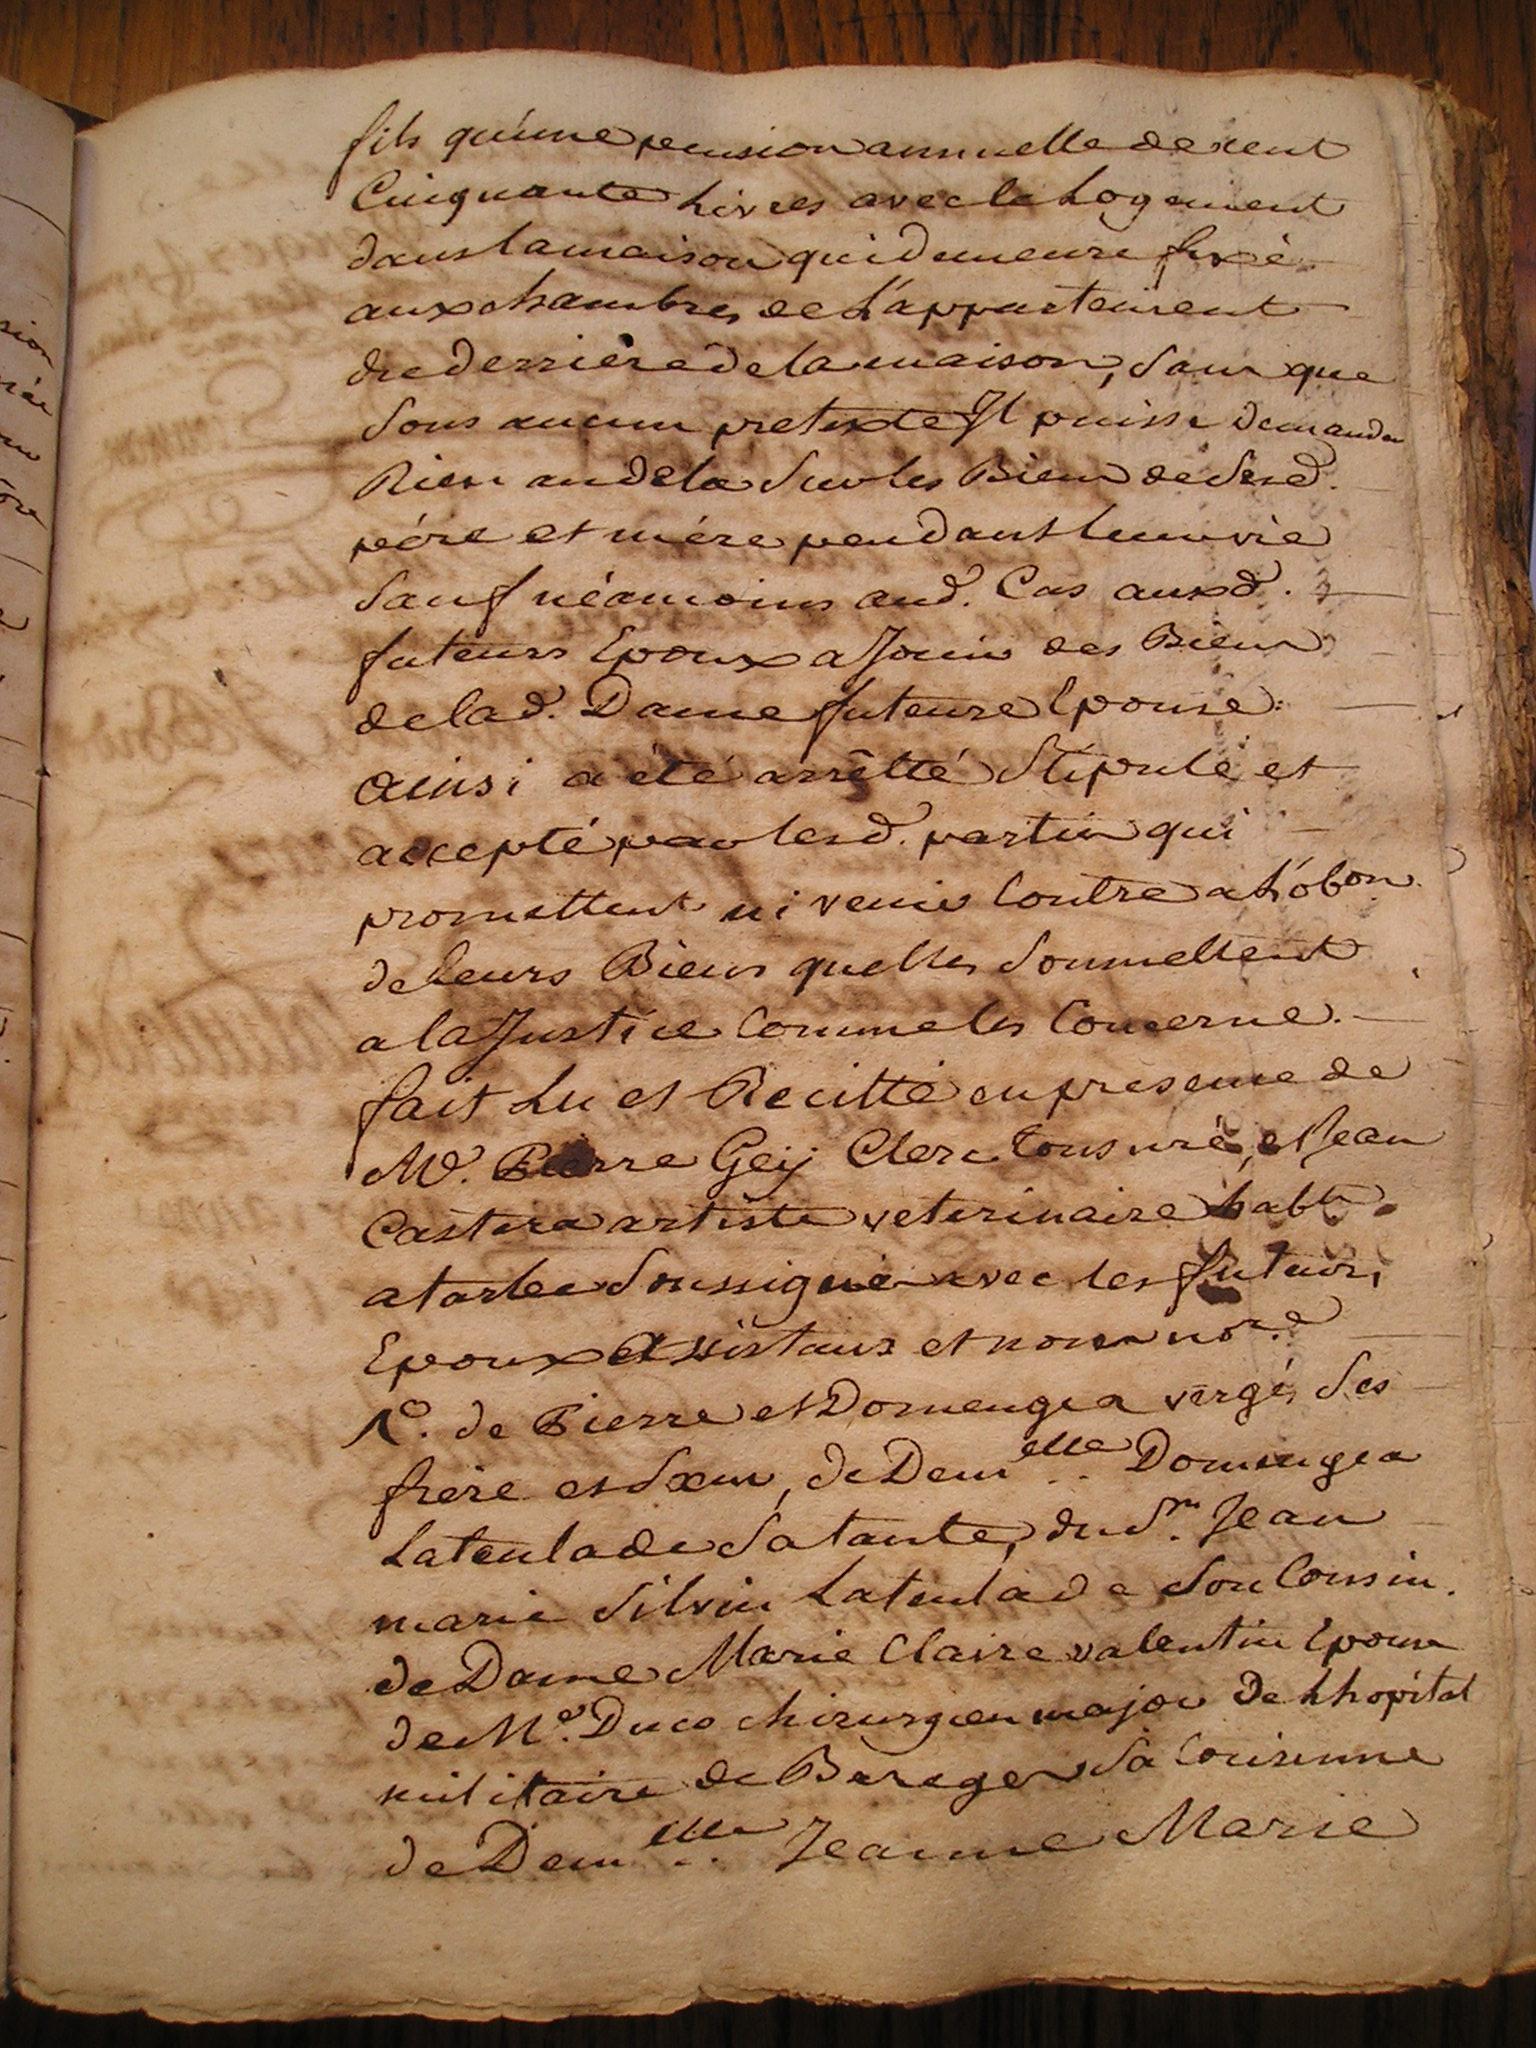 fils qu'une pension annuelle de cent
Cinquante Livres avec le Logement
dans la maison qui demeure fixé
aux chambres de L'appartement
de derriere de la maison, sans que
sous aucun pretexte Il puisse demander
Rien au dela sur les Biens de sesd.
pére et mére pendant leur vie
sauf néamoins aud. Cas auxd.
futeurs Epoux a Jouir des Biens
de lad. Dame futeure Epouse:
ainsi a été arrêtté stipulé et
accepté par lesd. parties qui
promettent ni venir Contre a L'obon.
de leurs Biens quelles soumettent
a la Justice comme les Concerne.
fait Lu et Recitté en presence de
Me. Pierre Gey Clerc tonsuré, et Jean
Castera artiste veterinaire habts.
a tarbes soussignés avec les futeurs
Epoux assistans et nous nore.
Ro. de Pierre et Domengea vergés ses
frère et sœur, de Demelle Domengea
Lateulade sa tante, du Sr. Jean
marie silvin Lateulade son Cousin.
de Dame Marie Claire valentin Epouse
de Me. Duco chirurgien major de Lhopital
militaire de Bareges sa Cousinne
de Demelle Jeanne Marie